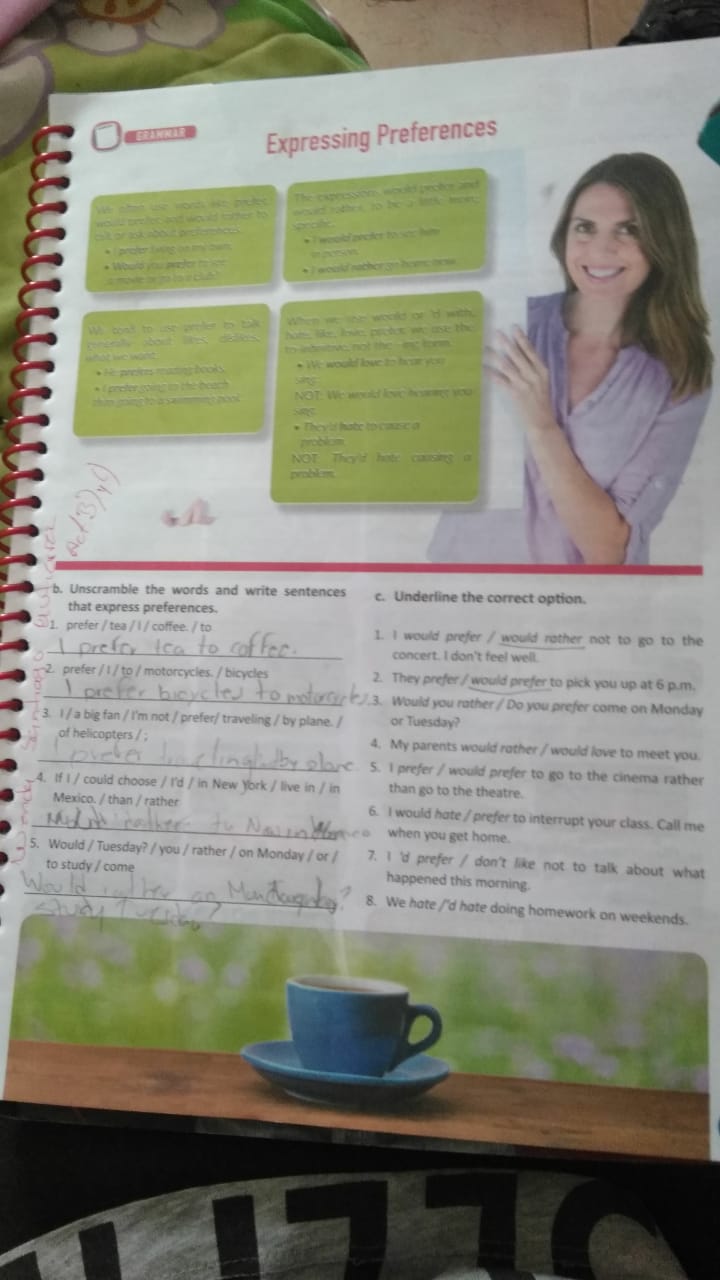 GRAMMAR
Expressing Preferences
We often use words like prefer,
would prefer and would rather to
talk or ask about preferences.
• I prefer living on my own.
• Would you prefer to see
a movie or go to a club?
The expressions would prefer and
would rather, to be a little more
specific.
• I would prefer to see him
in person.
• I would rather go home now.
We tend to use prefer to talk
generally about likes, dislikes,
what we want.
• He prefers reading books.
• I prefer going to the beach
than going to a swimming pool.
When we use would or 'd with,
hate, like, love, prefer, we use the
to-infinitive, not the -ing form.
• We would love to hear you
sing.
NOT: We would love hearing you
sing.
• They'd hate to cause a
problem.
NOT: They'd hate causing a
problem.
b. Unscramble the words and write sentences
that express preferences.
1. prefer / tea / I / coffee. / to
I prefer tea to coffee.
2. prefer / I / to / motorcycles. / bicycles
I prefer bicycles to motorcycles.
3. I / a big fan / I'm not / prefer/ traveling / by plane. /
of helicopters / ;
I prefer by plane.
4. If I / could choose / I'd / in New York / live in / in
Mexico. / than / rather
rather to
5. Would / Tuesday? / you / rather / on Monday / or /
to study / come
Would rather on
Study Tuesday?
c. Underline the correct option.
1. I would prefer / would rather not to go to the
concert. I don't feel well.
2. They prefer / would prefer to pick you up at 6 p.m.
3. Would you rather / Do you prefer come on Monday
or Tuesday?
4. My parents would rather / would love to meet you.
5. I prefer / would prefer to go to the cinema rather
than go to the theatre.
6. I would hate / prefer to interrupt your class. Call me
when you get home.
7. I 'd prefer / don't like not to talk about what
happened this morning.
8. We hate /'d hate doing homework on weekends.